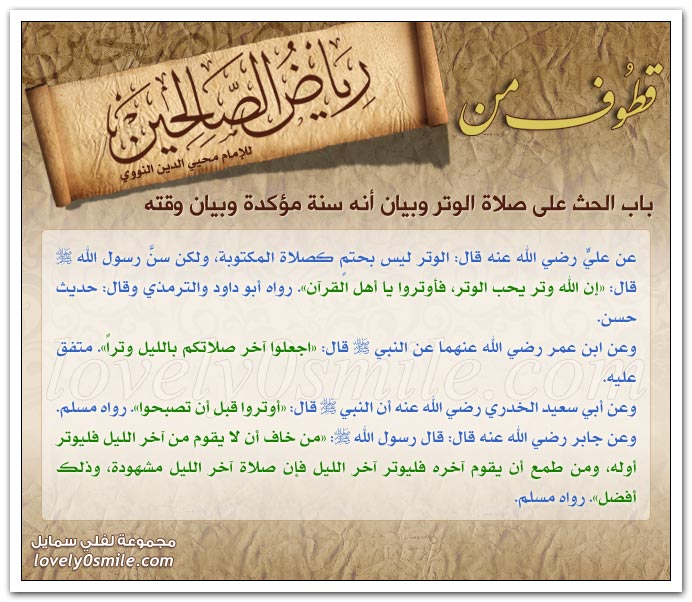 قطوف من
رِيَاضُ الصَّالِحِيْنَ
للإمام محيي الدين النووي
باب الحث على صلاة الوتر وبيان أنه سنة مؤكدة وبيان وقته
عن عليٍّ رضي الله عنه قال: الوتر ليس بحتمٍ كصلاة المكتوبة، ولكن سنَّ رسول الله ﷺ
قال: «إن الله وتر يحب الوتر، فأوتروا يا أهل القرآن». رواه أبو داود والترمذي وقال: حديث
حسن.
وعن ابن عمر رضي الله عنهما عن النبي ﷺ قال: «اجعلوا آخر صلاتكم بالليل وتراً». متفق
عليه.
وعن أبي سعيد الخدري رضي الله عنه أن النبي ﷺ قال: «أوتروا قبل أن تصبحوا». رواه مسلم.
وعن جابر رضي الله عنه قال: قال رسول الله ﷺ: «من خاف أن لا يقوم من آخر الليل فليوتر
أوله، ومن طمع أن يقوم آخره فليوتر آخر الليل فإن صلاة آخر الليل مشهودة، وذلك
أفضل». رواه مسلم.
lovely0smile.com
مجموعة لفلي سمايل
lovely0smile.com